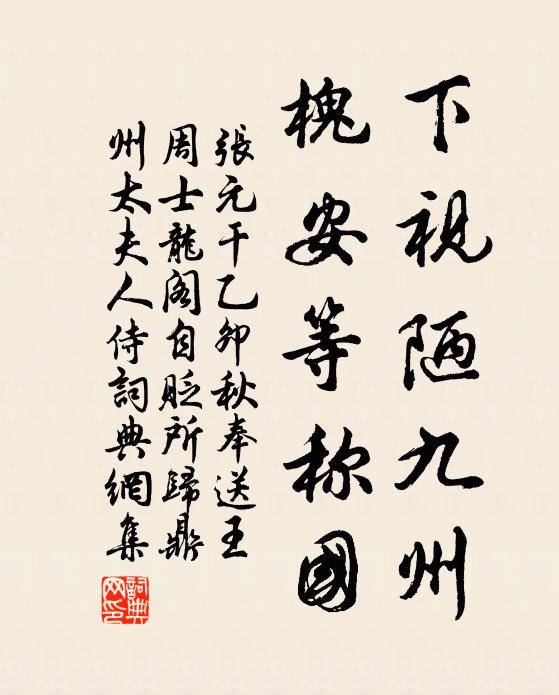 下視陋九州
槐安等称國
張元干乙卯秋奉送王
周士龍阁自貶所歸鼎
州太夫人侍詞典網集
詞典网印